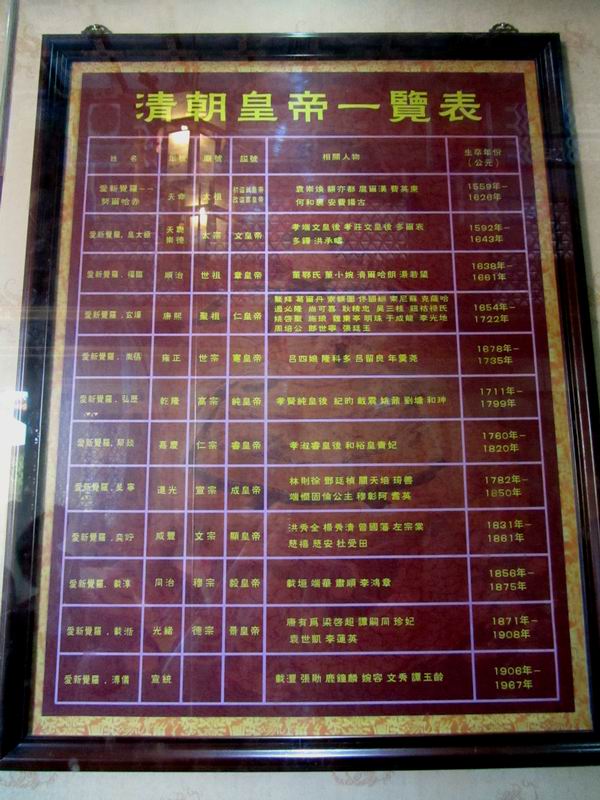 清朝皇帝一覽表
姓 名 年號 廟號 諡號 相關人物 生卒年份
(公元)
愛新覺羅——
努爾哈赤 天命 太祖 袁崇煥 額亦都 扈爾漢 費英東
何和禮 安費揚古 1559年—
1626年
愛新覺羅.皇太極 天聰
崇德 太宗 文皇帝 孝端文皇後 孝莊文皇後 多爾袞
多鐸 洪承疇 1592年—
1643年
愛新覺羅.福臨 順治 世祖 章皇帝 董鄂氏 董小婉 濟爾哈朗 湯若望 1638年—
1661年
愛新覺羅.玄燁 康熙 聖祖 仁皇帝 鰲拜 葛爾丹 索額圖 佟國綱 索尼 蘇克薩哈
遏必隆 尚可喜 耿精忠 吳三桂 鈕祜祿氏
姚啓聖 施琅 魏東亭 明珠 于成龍 李光地
周培公 郎世寧 張廷玉 1654年—
1722年
愛新覺羅.胤禛 雍正 世宗 憲皇帝 呂四娘 隆科多 呂留良 年羹堯 1678年—
1735年
愛新覺羅.弘歷 乾隆 高宗 純皇帝 孝賢純皇後 紀昀 戴震 姚鼐 劉墉 和珅 1711年—
1799年
愛新覺羅.顒琰 嘉慶 仁宗 睿皇帝 孝淑睿皇後 和裕皇貴妃 1760年—
1820年
愛新覺羅.旻寧 道光 宣宗 成皇帝 林則徐 鄧廷楨 關天培 琦善
端憫固倫公主 穆彰阿 耆英 1782年—
1850年
愛新覺羅.奕詝 咸豐 文宗 顯皇帝 洪秀全 楊秀清 曾國藩 左宗棠
慈禧 慈安 杜受田 1831年—
1861年
愛新覺羅.載淳 同治 穆宗 毅皇帝 載垣 端華 肅順 李鴻章 1856年—
1875年
愛新覺羅.載湉 光緒 德宗 景皇帝 康有爲 梁啓超 譚嗣同 珍妃
袁世凱 李蓮英 1871年—
1908年
愛新覺羅.溥儀 宣統 載灃 張勛 鹿鐘麟 婉容 文秀 譚玉齡 1906年—
1967年